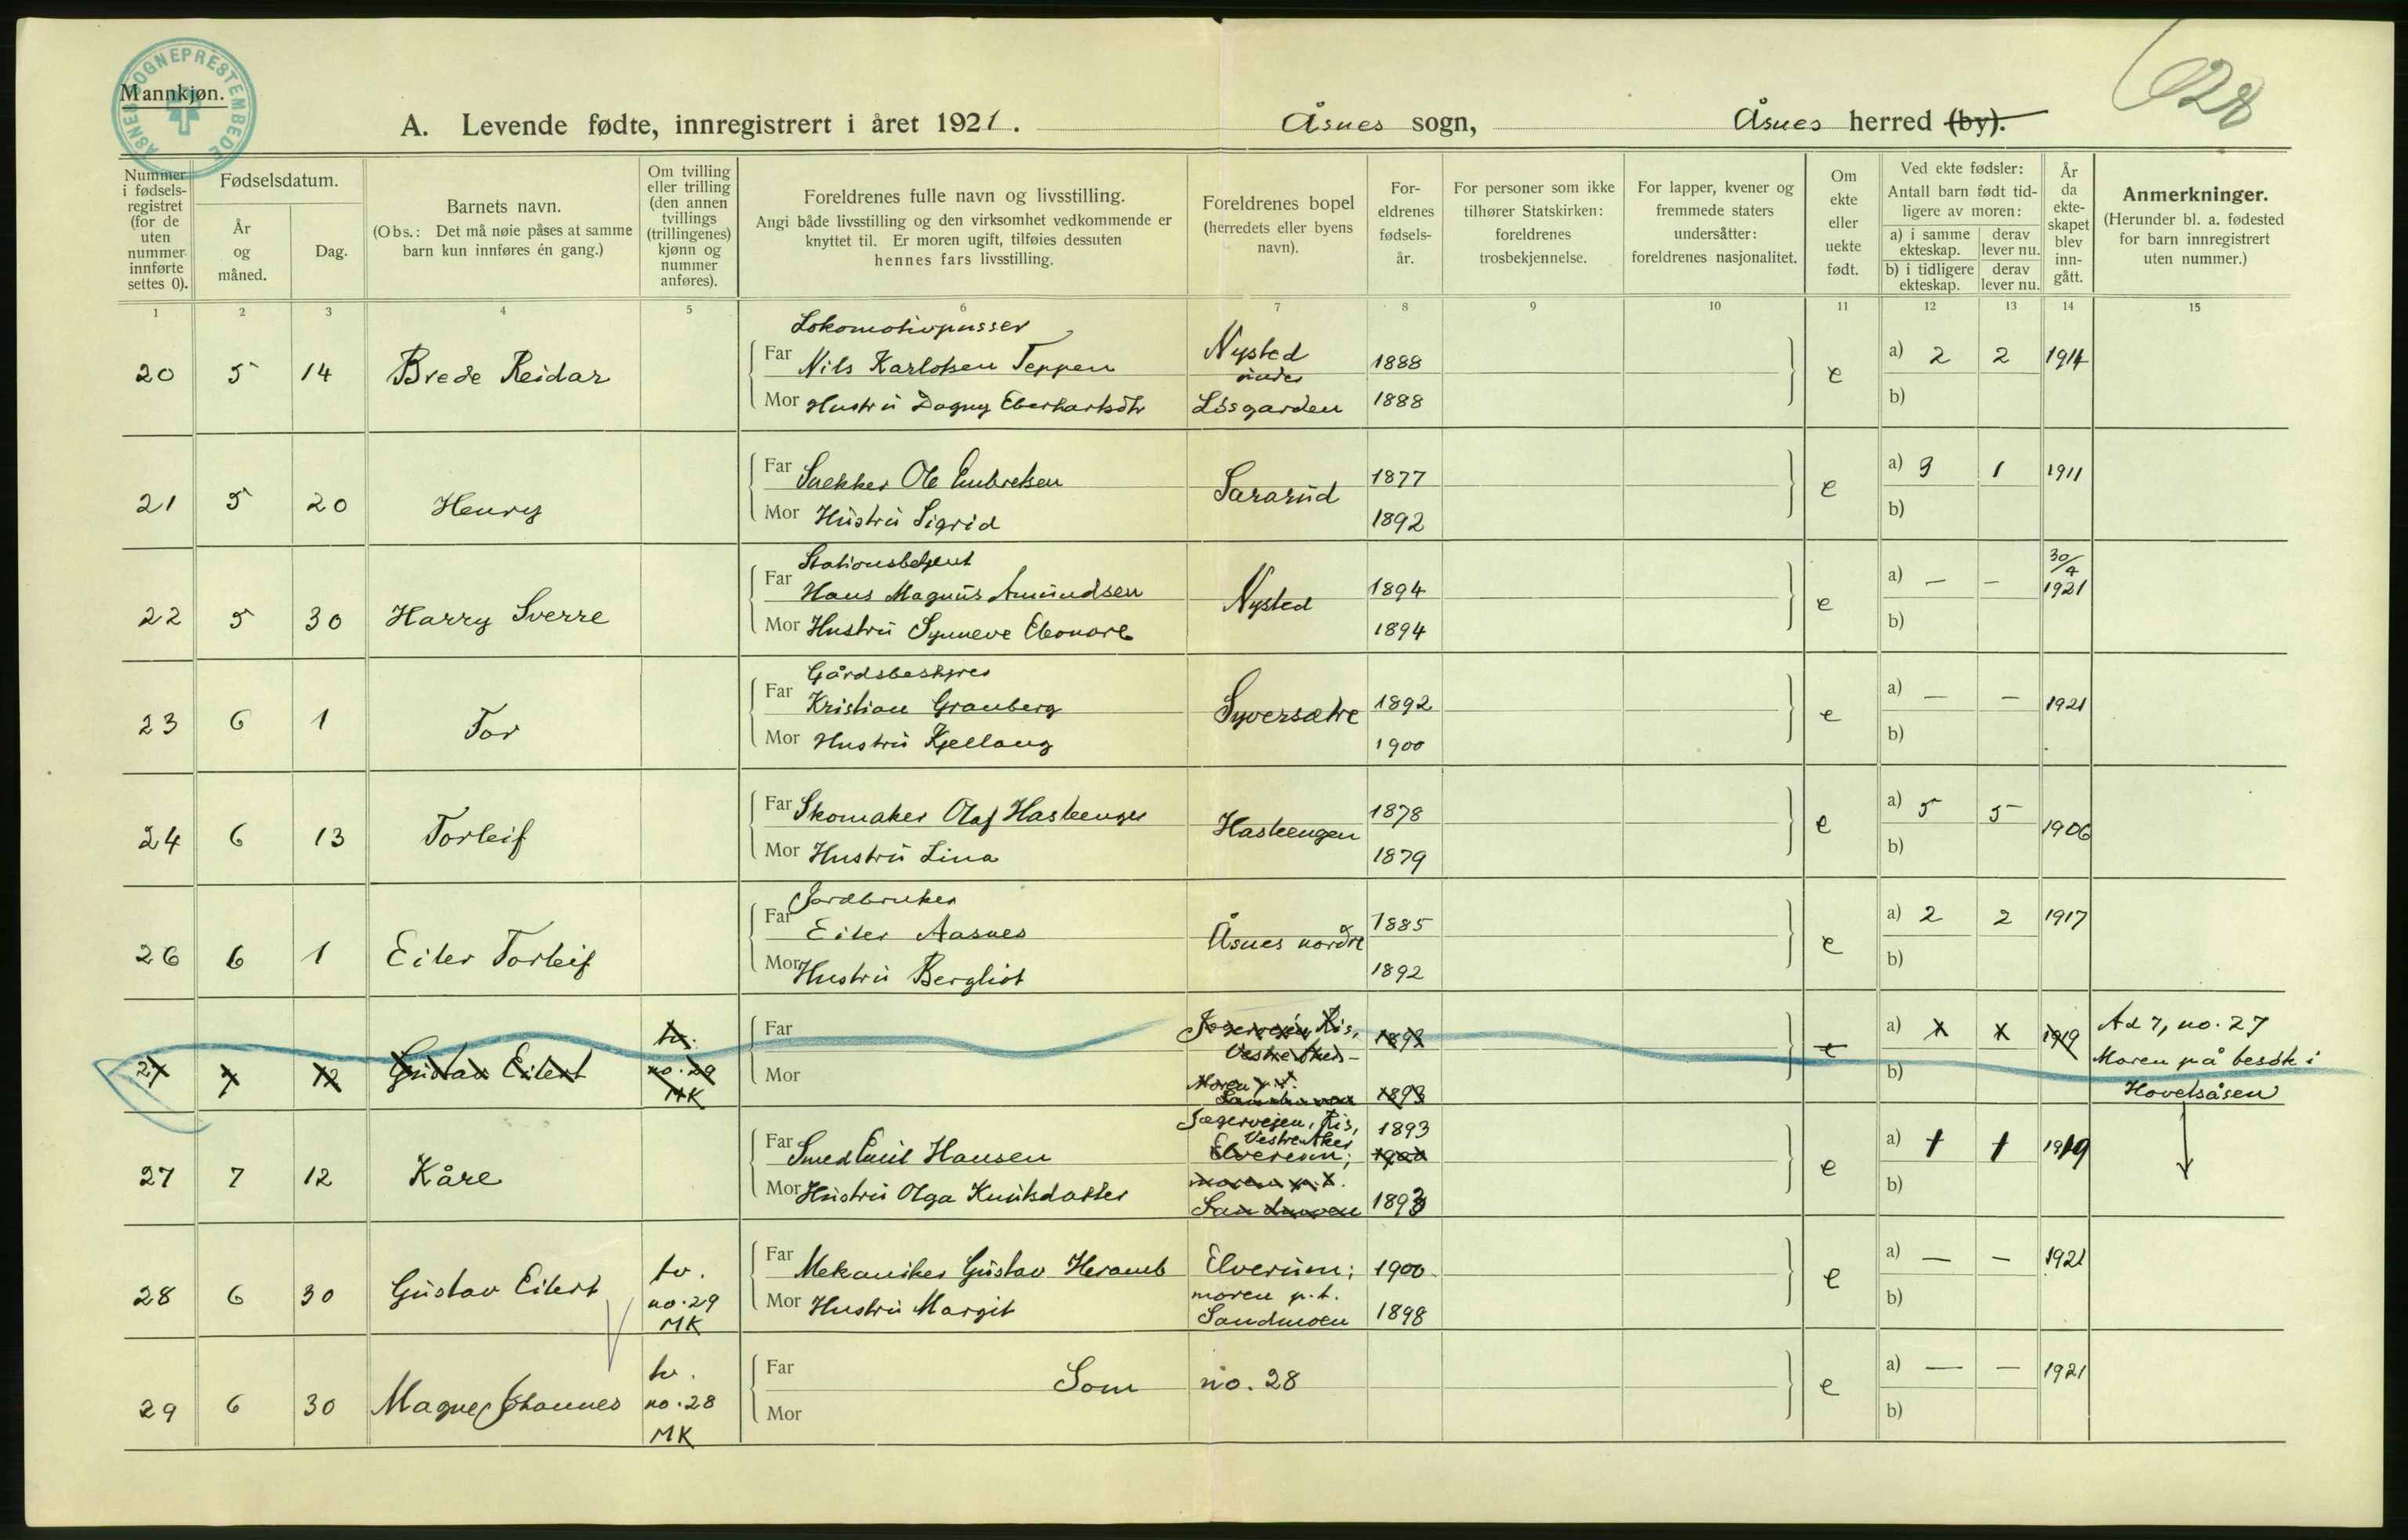 ÅSNES SOGNEPRESTEMBEDE
Mannkjøn.
128
A. Levende fødte, innregistrert i året 1921. Åsnes sogn, Åsnes herred (by).
Nummer i fødsels-registret (for de uten nummer innførte settes 0).
Fødselsdatum.
År og måned.
Dag.
Barnets navn.
(Obs.: Det må nøie påses at samme barn kun innføres én gang.)
Om tvilling eller trilling (den annen tvillings (trillingenes) kjønn og nummer anføres).
Foreldrenes fulle navn og livsstilling.
Angi både livsstilling og den virksomhet vedkommende er knyttet til. Er moren ugift, tilføies dessuten hennes fars livsstilling.
Foreldrenes bopel (herredets eller byens navn).
For-eldrenes fødsels-år.
For personer som ikke tilhører Statskirken: foreldrenes trosbekjennelse.
For lapper, kvener og fremmede staters undersåtter: foreldrenes nasjonalitet.
Om ekte eller uekte født.
Ved ekte fødsler: Antall barn født tid-ligere av moren:
a) i samme ekteskap. derav lever nu.
b) i tidligere ekteskap. derav lever nu.
År da ekte-skapet blev inn-gått.
Anmerkninger.
(Herunder bl. a. fødested for barn innregistrert uten nummer.)
1 2 3 4 5 6 7 8 9 10 11 12 13 14 15
Lokomotivpusser
20 5 14 Brede Reidar Far Nils Karlotsen Teppen Nysted under 1888 e a) 2 2 1914
Mor Hustru Dagny Eberhartsdtr Løsgarden 1888 b)
21 5 20 Henry Far Snekker Ole Embretsen Sararud 1877 e a) 3 1 1911
Mor Hustru Sigrid 1892 b)
Stationsbetjent
22 5 30 Harry Sverre Far Hans Magnus Amundsen Nysted 1894 e a) — — 30/4 1921
Mor Hustru Synneve Eleonore 1894 b)
Gårdsbestyrer
23 6 1 Tor Far Kristian Granberg Syversætre 1892 e a) — — 1921
Mor Hustru Kjellaug 1900 b)
24 6 13 Torleif Far Skomaker Olaf Hasleengen Hasleengen 1878 e a) 5 5 1906
Mor Hustru Lina 1879 b)
Jordbruker
26 6 1 Eiler Torleif Far Eiler Aasnes Åsnes nordre 1885 e a) 2 2 1917
Mor Hustru Bergliot 1892 b)
27 7 12 Gustav Eilert tv. no. 29 MK Far Jegerveien, Ris, Vestre Aker 1893 e a) 1 1 1919 Ad 7, no. 27
Mor Moren p.t. Sandmoen 1893 b) Moren på besøk i
Hovelsåsen
27 7 12 Kåre Far Smed Emil Hansen Jægerveien, Ris, Vestre Aker 1893 e a) 1 1 1919
Elverum; 1900
Mor Hustru Olga Knutsdatter moren p.t. Sandmoen 1893 b)
28 6 30 Gustav Eilert tv. no. 29 MK Far Mekaniker Gustav Heramb Elverum; 1900 e a) — — 1921
Mor Hustru Margit moren p.t. Sandmoen 1898 b)
29 6 30 Magne Johannes tv. no. 28 MK Far Som no. 28 e a) — — 1921
Mor b)